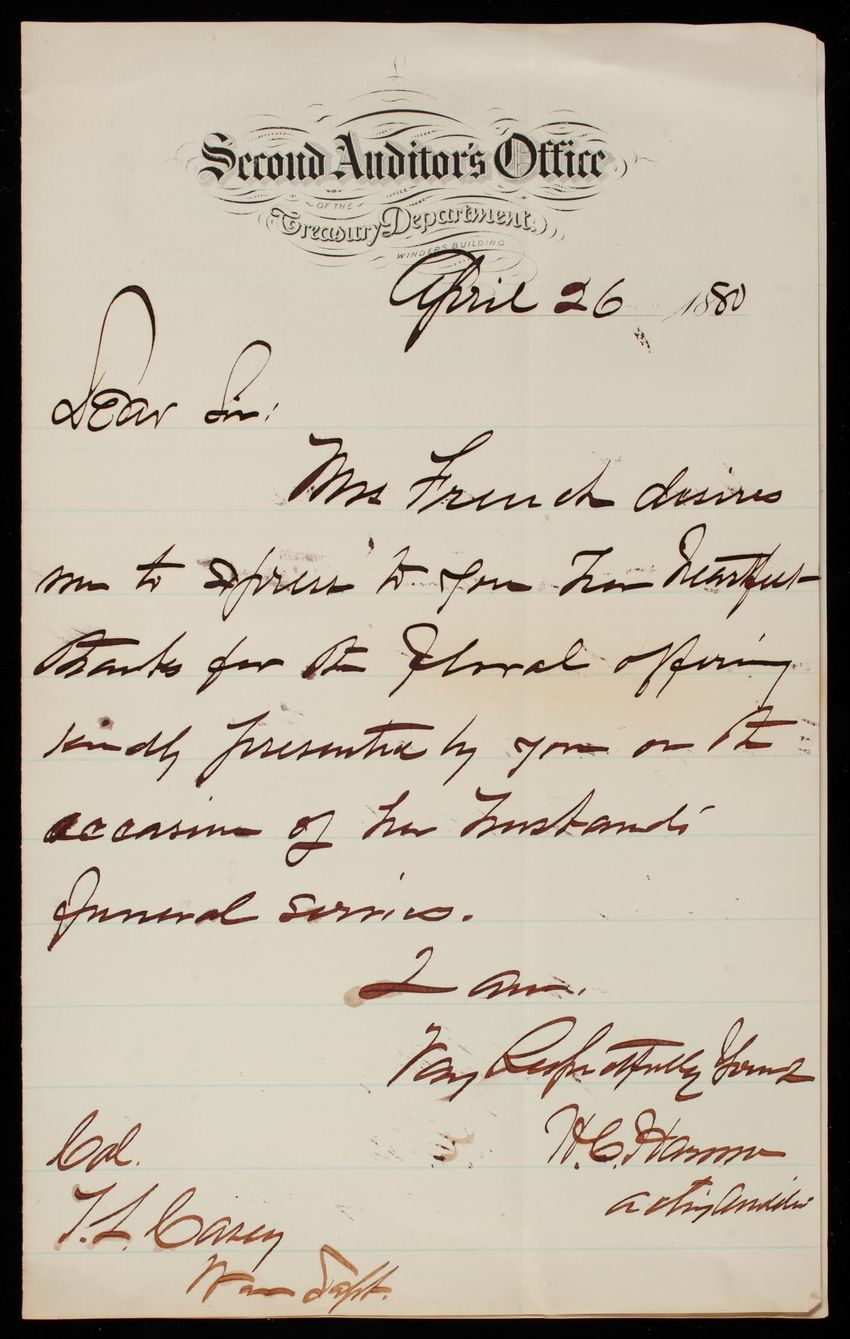 Second Auditor's Office
OF THE
Treasury Department,
WINDER'S BUILDING
April 26 1880
Dear Sir:
Mrs French desires
me to express to you her heartfelt
thanks for the floral offering
kindly presented by you on the
occasion of her husband's
funeral services.
I am.
Very Respectfully Yours
H.C. Harmon
acting Auditor
Col.
T. L. Casey
War Dept.